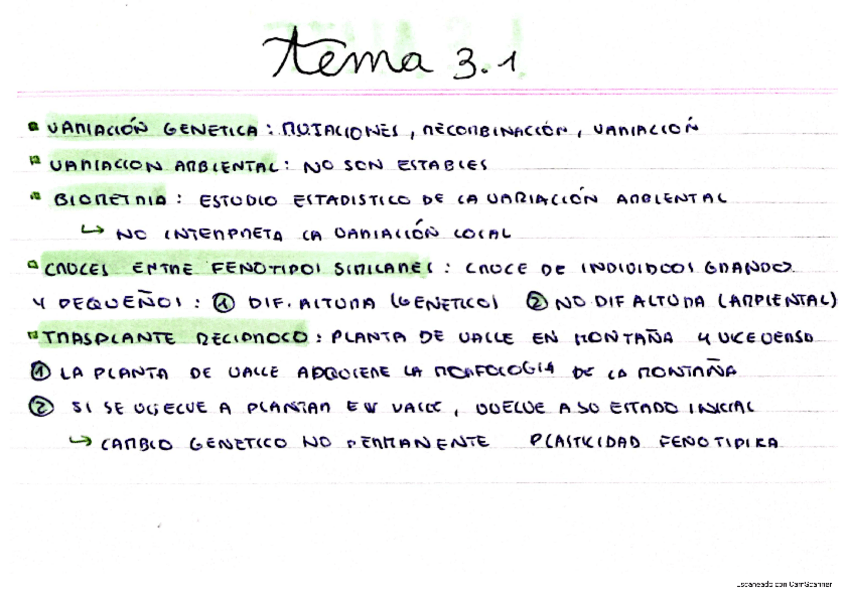 tema 3.1
VARIACIÓN GENETICA : MUTACIONES, RECOMBINACIÓN, VARIACIÓN
VARIACION AMBIENTAL : NO SON ESTABLES
BIOMETRIA : ESTUDIO ESTADISTICO DE LA VARIACIÓN AMBIENTAL
↳ NO INTERPRETA LA VARIACIÓN LOCAL
CRUCES ENTRE FENOTIPOS SIMILARES : CRUCE DE INDIVIDUOS GRANDES
Y PEQUEÑOS : ① DIF. ALTURA (GENETICO) ② NO DIF ALTURA (AMBIENTAL)
TRASPLANTE RECIPROCO : PLANTA DE VALLE EN MONTAÑA Y VICEVERSA
① LA PLANTA DE VALLE ADQUIERE LA MORFOLOGIA DE LA MONTAÑA
② SI SE VUELVE A PLANTAR EN VALLE, VUELVE A SU ESTADO INICIAL
↳ CAMBIO GENETICO NO PERMANENTE PLASTICIDAD FENOTIPIKA
Escaneado con CamScanner